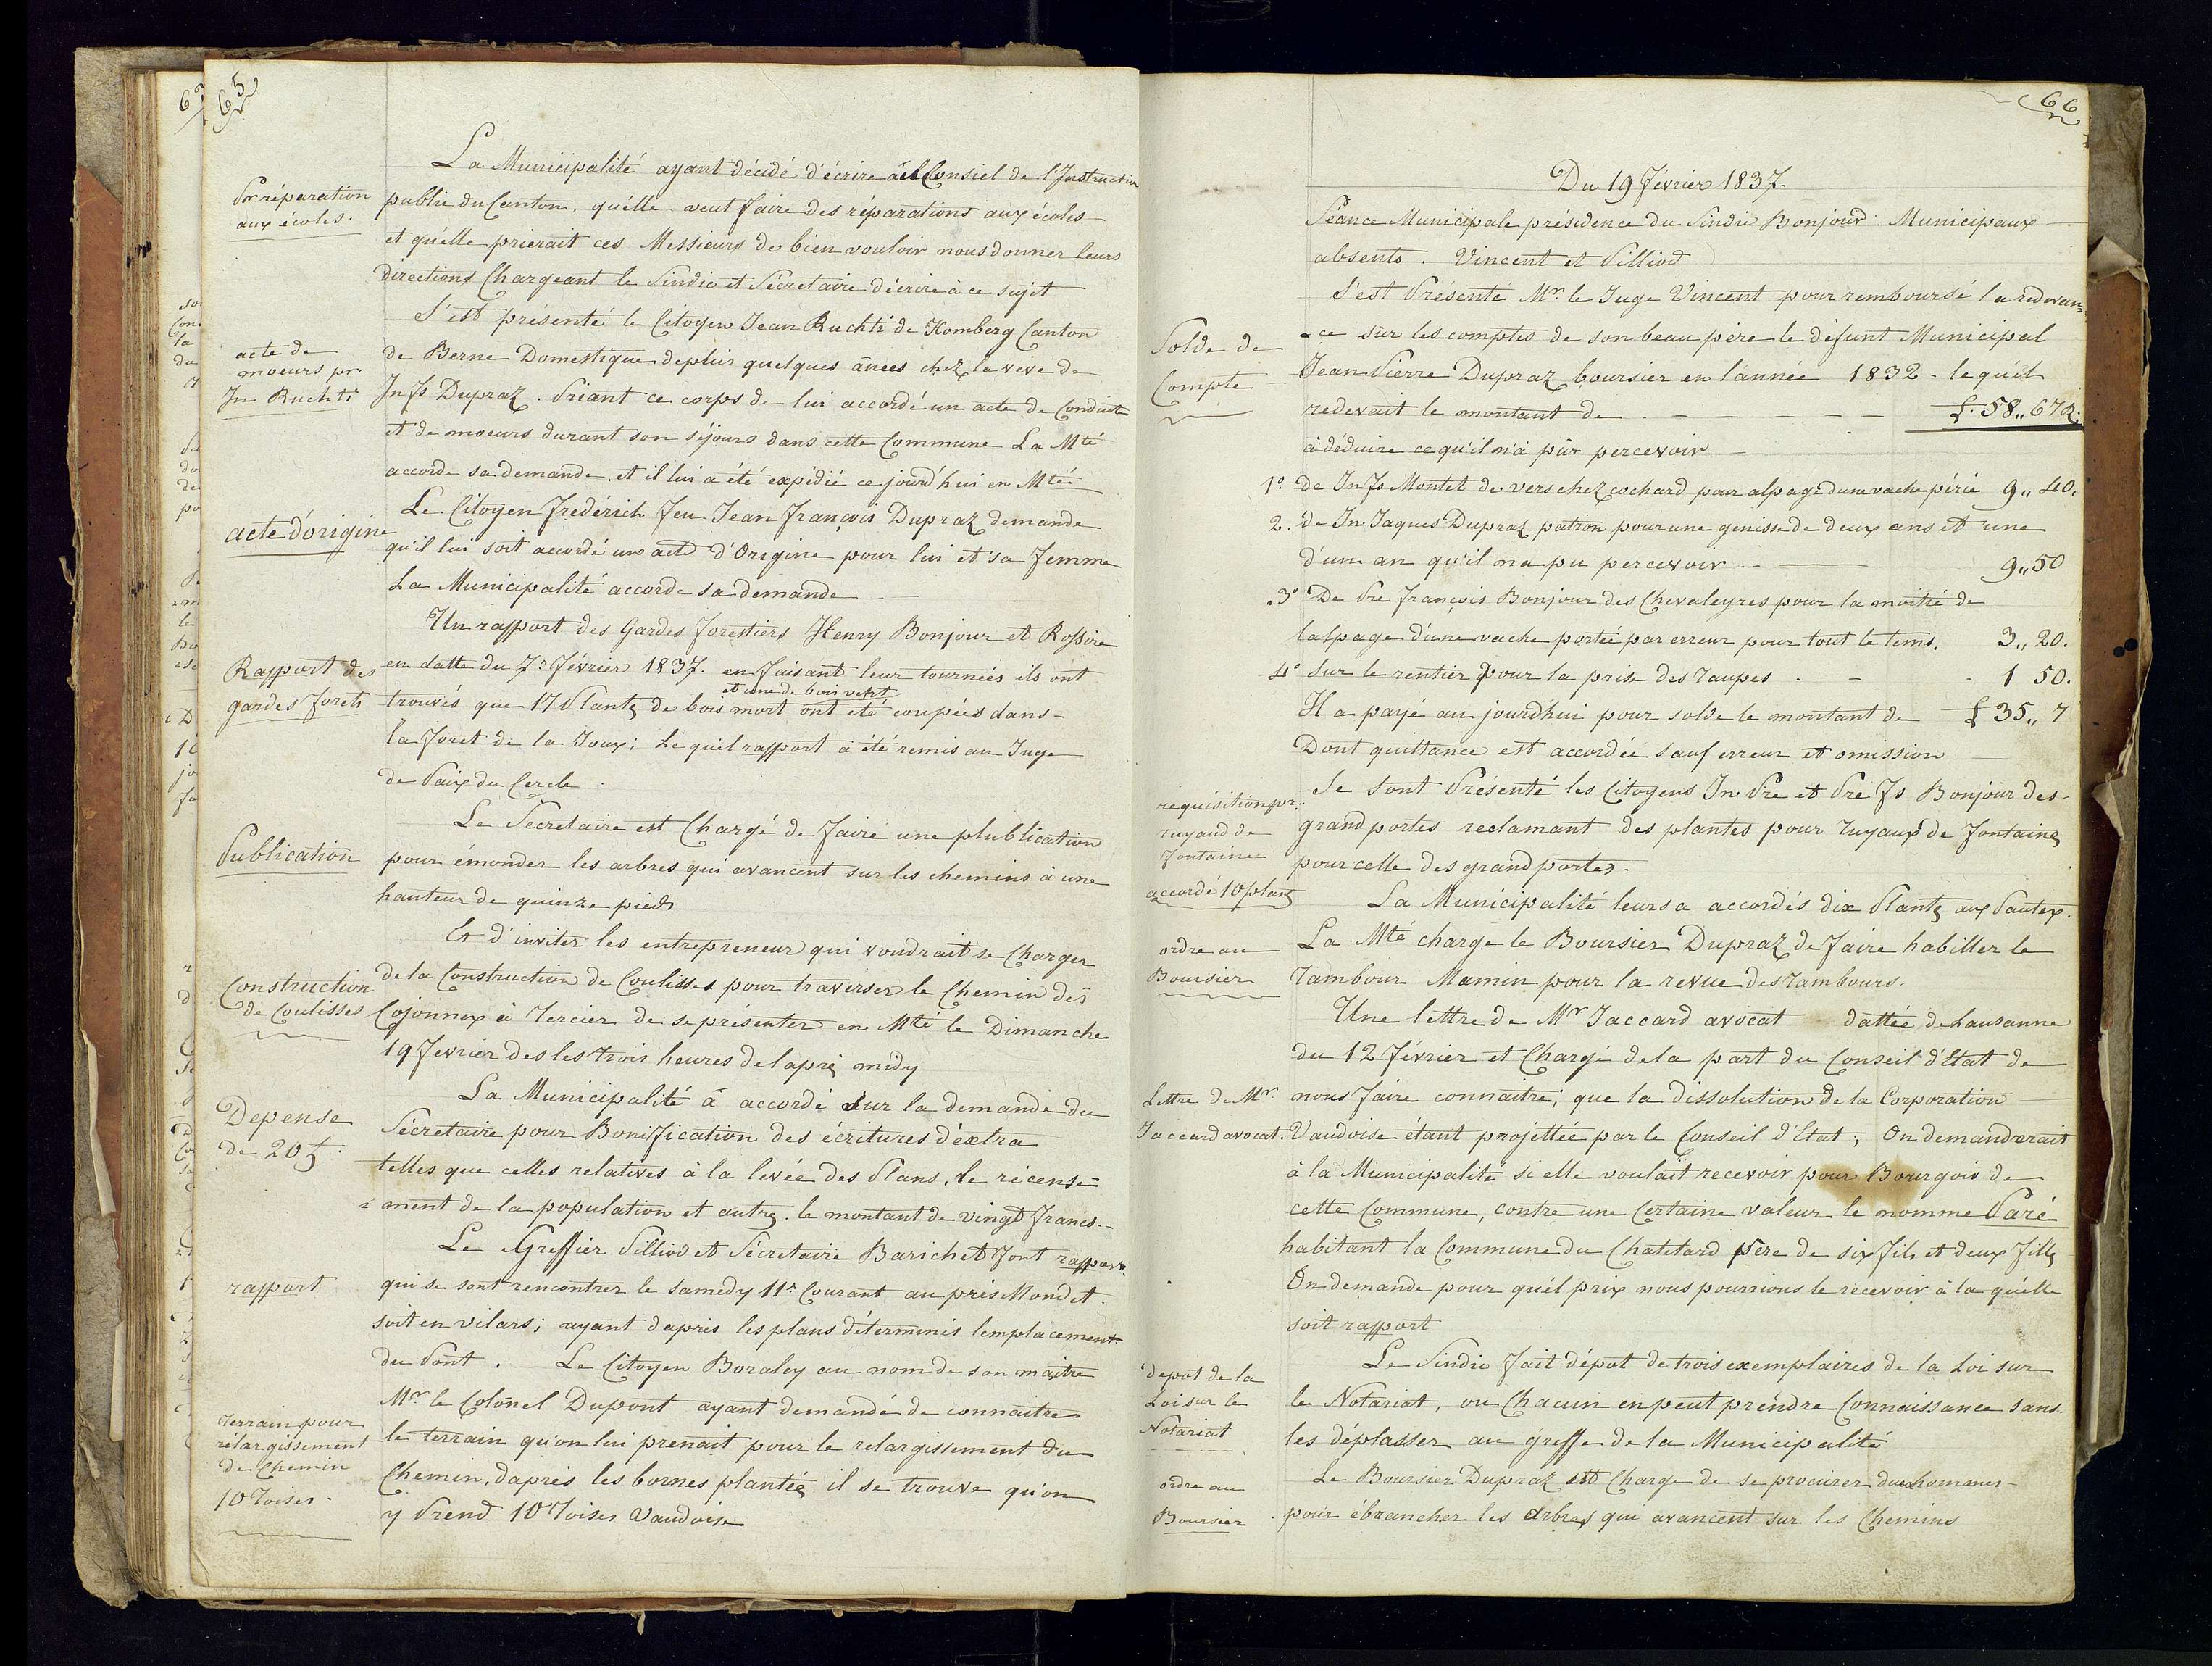 65
La Municipalité ayant décidé d'écrire au Consiel de l'Instruction
Pr réparation
aux écoles.
public du Canton, qu'élle veut faire des réparations aux écoles
et qu'élle prierait ces Messieurs de bien vouloir nous donner leurs
directions Chargeant le Sindic et Sécretaire d'écrire à ce sujet
S'est présenté le Citoyen Jean Ruchti de Homberg Canton
acte de
moeurs pr
Jn Ruchti
de Berne Domestique depluis quelques ânées chez la veve de
Jn Fs Dupraz. Priant ce corps de lui accordé un acte de Conduite
et de moeurs durant son séjours dans cette Commune La Mté
accorde sa demande. et il lui a été expédié ce jourd'hui en Mté
Le Citoyen Frederich feu Jean François Dupraz demande
acte d'origine
qu'il lui soit accordé un acte d'Origine pour lui et sa femme
La Municipalité accorde sa demande
Un rapport des Gardes forestiers Henry Bonjour et Rossire
Rapport des
gardes forets
en datte du 7r février 1837. en faisant leur tourneés ils ont
et une de bois vert
trouvés que 17 Plantes de bois mort ont été coupées dans
la Foret de la Joux; Le quel rapport à été remis au Juge
de Paix du Cercle.
Le Secretaire est Chargé de faire une plublication
Publication
pour émonder les arbres qui avancent sur les chemins à une
hauteur de quinze pieds
Et d'inviter les entrepreneur qui voudrait se Charger
Construction
de Coulisses
de la Construction de Coulisses pour traverser le Chemin des
Cojonnex à Tercier de se présenter en Mté le Dimanche
19 fevrier des les trois heures de l'après midy
La Municipalité à accordé sur la demande du
Depense
de 20 f.
Sécretaire pour Bonification des écritures d'extra
telles que celles relatives à la levée des Plans, le récense
ment de la population et autres. le montant de vingt francs.
Le Greffier Pilliod et Sécretaire Barichet font rapport
rapport
qui se sont rencontrer le samedy 11r Courant au près Mondet
soit en vilars; ayant d'après les plans déterminés l'emplacement
du Pont. Le Citoyen Boraley au nom de son maitre
Mr le Colonel Dupont ayant demandé de connaitre
Terrain pour
rélargissement
de Chemin
10 Toises.
le terrain qu'on lui prenait pour le relargissement du
Chemin, d'après les bornes plantées il se trouve qu'on
y Prend 10 Toises Vaudoise
66
Du 19 Février 1837.
Séance Municipale présidence du Sindic Bonjour Municipaux
absents. Vincent et Pilliod
S'est Présenté Mr le Juge Vincent pour remboursé la redevan
Solde de
Compte
ce sur les comptes de son beau père le défunt Municipal
Jean Pierre Dupraz boursier en l'année 1832. le quél
redevait le montant de £. 58,, 67 R.
à déduire ce qu'il n'a pûr percevoir
1º de Jn Fs Montet de vers chez cochard pour alpage d'une vache périe 9,, 40.
2. de Jn Jaques Dupraz patron pour une genisse de deux ans et une
d'un an qu'il na pu percevoir 9,, 50
3º De Pre François Bonjour des Chevaleyres pour la moitié de
l'alpage d'une vache portée par erreur pour tout le tems. 3,, 20.
4º Sur le rentier pour la prise des Taupes 1 50.
Il a payé au jourd'hui pour solde le montant de £ 35,, 7
Dont quittance est accordée sauf erreur et omission
Se sont Présenté les Citoyens Jn Pre et Pre Fs Bonjour des
requisition pr
tuyaud de
fontaine
accordé 10 plants
grand portes reclamant des plantes pour Tuyaux de Fontaines
pour celle des grand portes.
La Municipalité leurs a accordés dix Plantes aux Pautex.
ordre au
Boursier
La Mté charge le Boursier Dupraz de faire habiller le
Tambour Mamin pour la revue des Tambours.
Une lettre de Mr Jaccard avocat dattée de Lausanne
du 12 Février et Chargé de la part du Conseil d'Etat de
Lettre de Mr
Jaccard avocat.
nous faire connaitre; que la dissolution de la Corporation
Vaudoise étant projettée par le Conseil d'Etat, On demanderait
à la Municipalité si elle voulait recevoir pour Bourgois de
cette Commune, contre une Certaine valeur le nomme Paré
habitant la Commune du Chatelard père de six fils et deux filles
On demande pour quél prix nous pourrions le recevoir à la quélle
soit rapport
Le Sindic fait dépot de trois exemplaires de la Loi sur
dépot de la
Loi sur le
Notariat
le Notariat, ou Chacun en peut prendre Connaissance sans
les déplasser au greffe de la Municipalité
Le Boursier Dupraz est Charge de se procurer deux hommes
ordre au
Boursier
pour ébrancher les Arbres qui avancent sur les Chemins